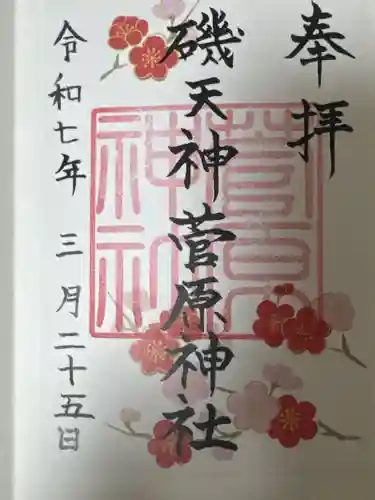 奉拝
磯天神菅原神社
令和七年 三月二十五日
菅原
神社